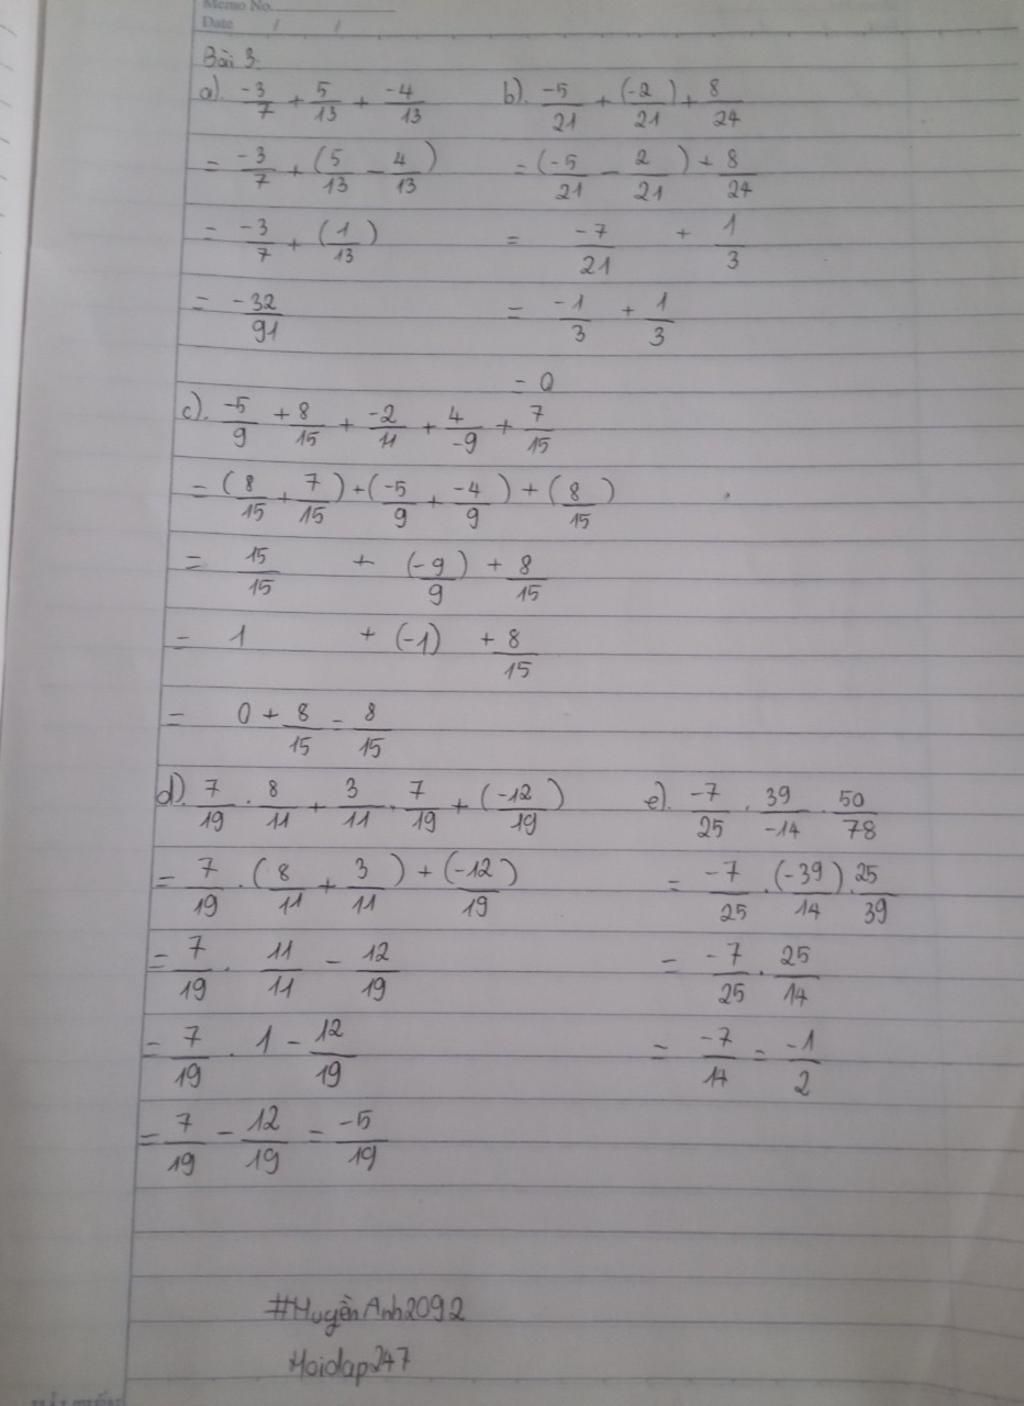 Memo No.
Date / /
Bài 3:
a). -3/7 + 5/13 + -4/13
= -3/7 + (5/13 - 4/13)
= -3/7 + (1/13)
= -32/91
b). -5/21 + (-2/21) + 8/24
= (-5/21 - 2/21) + 8/24
= -7/21 + 1/3
= -1/3 + 1/3
= 0
c). -5/9 + 8/15 + -2/11 + 4/-9 + 7/15
= (8/15 + 7/15) + (-5/9 + -4/9) + (8/15)
= 15/15 + (-9)/9 + 8/15
= 1 + (-1) + 8/15
= 0 + 8/15 = 8/15
d). 7/19 . 8/11 + 3/11 . 7/19 + (-12/19)
= 7/19 . (8/11 + 3/11) + (-12/19)
= 7/19 . 11/11 - 12/19
= 7/19 . 1 - 12/19
= 7/19 - 12/19 = -5/19
e). -7/25 . 39/-14 . 50/78
= -7/25 . (-39)/14 . 25/39
= -7/25 . 25/14
= -7/14 = -1/2
#HuyềnAnh2092
Hoidap247